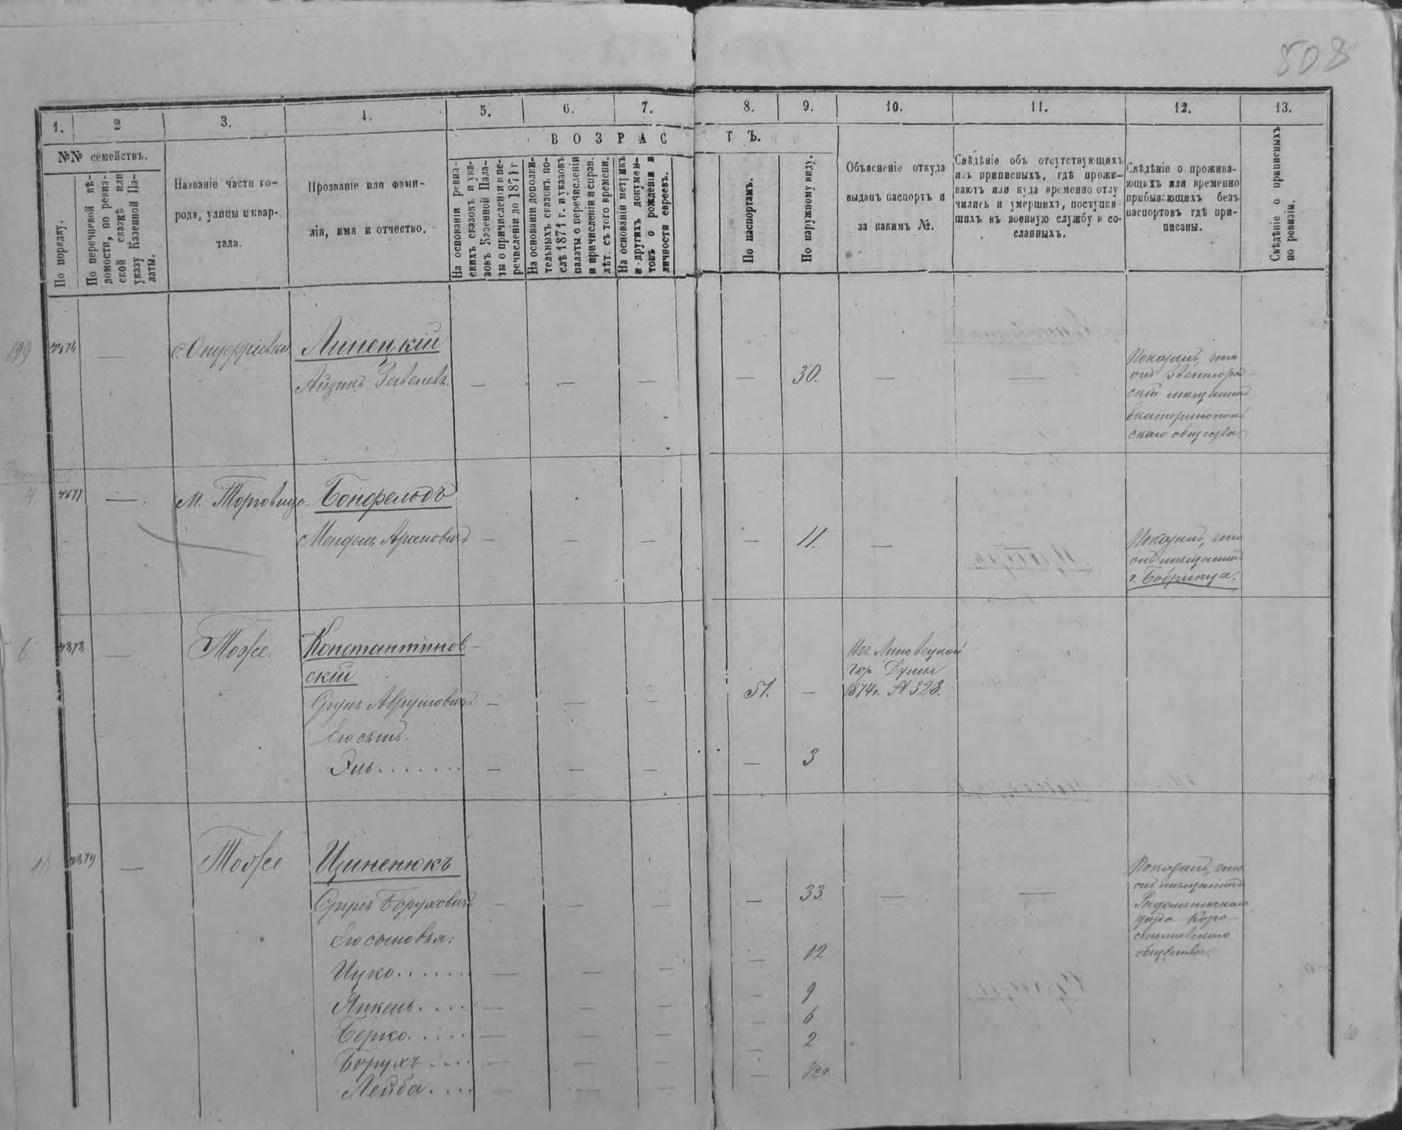 508
1. 2 3. 4. 5. 6. 7. 8. 9. 10. 11. 12. 13.
№№ семействъ.
В О З Р А С Т Ъ.
По порядку.
По перечневой вѣ-
домости, по ревиз-
ской сказкѣ или
указу Казенной Па-
латы.
Названіе части го-
рода, улицы и квар-
тала.
Прозваніе или фами-
лія, имя и отчество.
На основаніи ревиз-
скихъ сказокъ и ука-
зовъ Казенной Пала-
ты о причисленіи и пе-
речисленіи до 1871 г.
На основаніи дополни-
тельныхъ сказокъ по-
слѣ 1871 г. и указовъ
палаты о перечисленіи
и причисленіи и справ.
лѣт. съ того времени.
На основаніи метрикъ
и другихъ докумен-
товъ о рожденіи и
личности евреевъ.
По паспортамъ.
По наружному виду.
Объясненіе откуда
выданъ паспортъ и
за какимъ №.
Свѣдѣніе объ отсутствующихъ
изъ приписныхъ, гдѣ прожи-
ваютъ или куда временно отлу
чились и умершихъ, поступив-
шихъ въ военную службу и со-
сланныхъ.
Свѣдѣніе о прожива-
ющихъ или временно
прибывающихъ безъ
паспортовъ гдѣ при-
писаны.
Свѣдѣніе о приписныхъ
по ревизіи.
199 4876 — с. Онуфріевка Липецкій
Айзикъ — — — — 30. — —
Показалъ, что
онъ Звенигород-
скій мѣщанинъ
Екатеринополь-
скаго общества
4 4877 — М. Торговица. Бонфельдъ
Мендель Ароновичъ — — — — 11. —
Показалъ, что
онъ мѣщанинъ
г. Бобринца.
6 4878 — Тоже. Константинов-
скій
Срулъ — — — 51. —
Изъ Липовецкой
гор. Думы
1874 г. № 328.
Эль . . . . . . . — — — — 3
4879 — Тоже Щиненюкъ
Срулъ Боруховичъ — — — — 33. — —
Показалъ, что
онъ мѣщанинъ
Радомысльскаго
уѣзда Коро-
стышевскаго
общества.
Ицко . . . . . . — — — — 12
Янкель . . . . — — — — 9
Берко . . . . . — — — — 6
Борухъ . . . . — — — — 2
Лейба . . . . — — — —